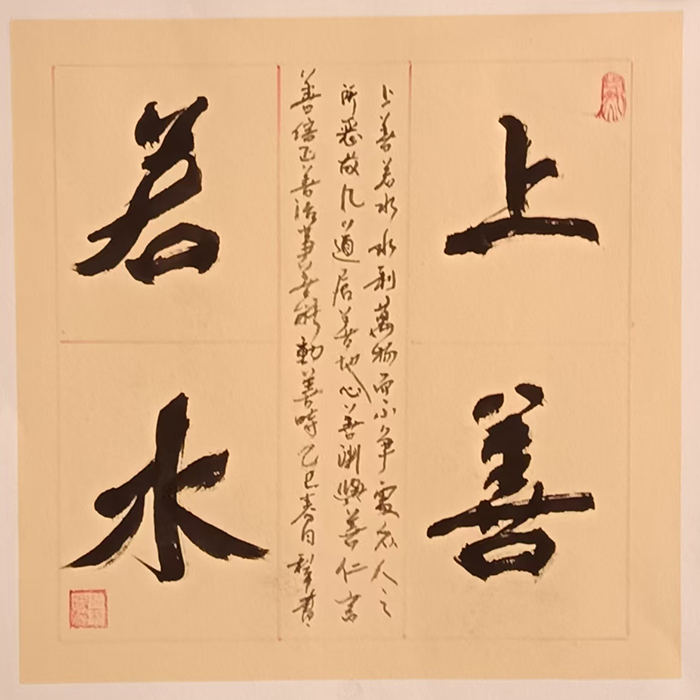 上善
上善若水水利萬物而不争處众人之
所惡故几於道居善地心善渊與善仁言
善信正善治事善能動善時乙巳春日
若水